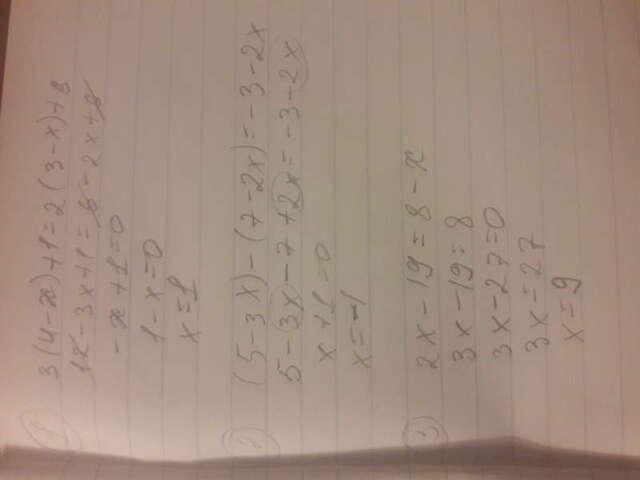 1
3(4-x)+1=2(3-x)+6
12-3x+1=6-2x+6
-x+1=0
1-x=0
x=1
2
(5-3x)-(7-2x)=-3-2x
5-3x-7+2x=-3-2x
x+1=0
x=-1
3
2x-19=8-x
3x-19=8
3x-27=0
3x=27
x=9